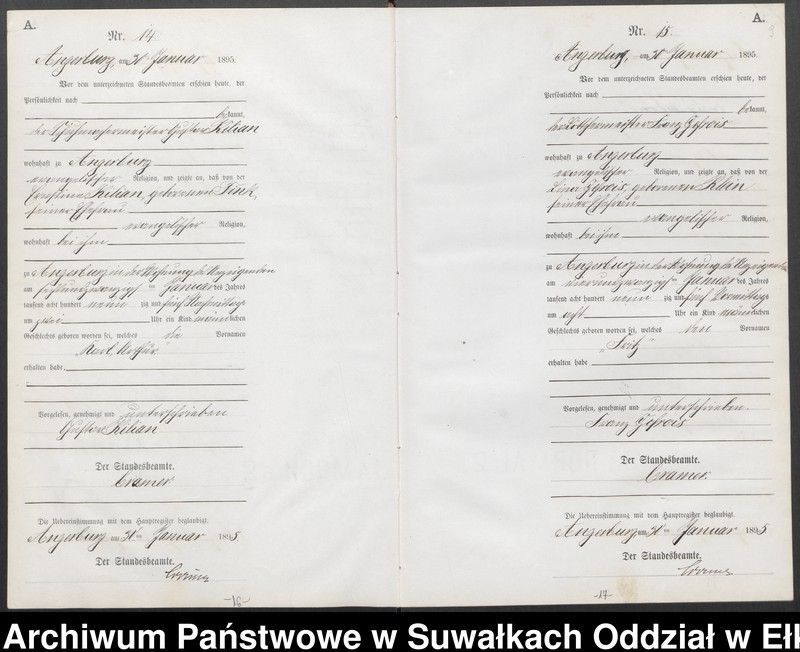 A.
Nr. 14.
Angerburg, am 30 Januar 1895.
Vor dem unterzeichneten Standesbeamten erschien heute, der
Persönlichkeit nach
bekannt,
der Schuhmachermeister Gustav Kilian
wohnhaft zu Angerburg
evangelischer Religion, und zeigte an, daß von der
Kilian, geborenen Fink,
seiner Ehefrau
evangelischer Religion,
wohnhaft bei ihm
zu Angerburg in der Wohnung des Anzeigenden
am sechsundzwanzigsten Januar des Jahres
tausend acht hundert neunzig und fünf Nachmittags
um zwei Uhr ein Kind männlichen
Geschlechts geboren worden sei, welches die Vornamen
"Karl, Arthur"
erhalten habe.
Vorgelesen, genehmigt und unterschrieben
Gustav Kilian
Der Standesbeamte.
Cramer.
Die Uebereinstimmung mit dem Hauptregister beglaubigt.
Angerburg am Januar 1895
Der Standesbeamte.
Cramer
-16-
A.
Nr. 15.
Angerburg, am 30 Januar 1895.
Vor dem unterzeichneten Standesbeamten erschien heute, der
Persönlichkeit nach
bekannt,
der Franz
wohnhaft zu Angerburg
evangelischer Religion, und zeigte an, daß von der
geborenen Klein
seiner Ehefrau
evangelischer Religion,
wohnhaft bei ihm
zu Angerburg in der Wohnung des Anzeigenden
am vierundzwanzigsten Januar des Jahres
tausend acht hundert neunzig und fünf Vormittags
um acht Uhr ein Kind männlichen
Geschlechts geboren worden sei, welches den Vornamen
"Fritz"
erhalten habe
Vorgelesen, genehmigt und unterschrieben.
Franz
Der Standesbeamte.
Cramer.
Die Uebereinstimmung mit dem Hauptregister beglaubigt.
Angerburg am 30 Januar 1895
Der Standesbeamte.
Cramer
-17-
Archiwum Państwowe w Suwałkach Oddział w Ełk